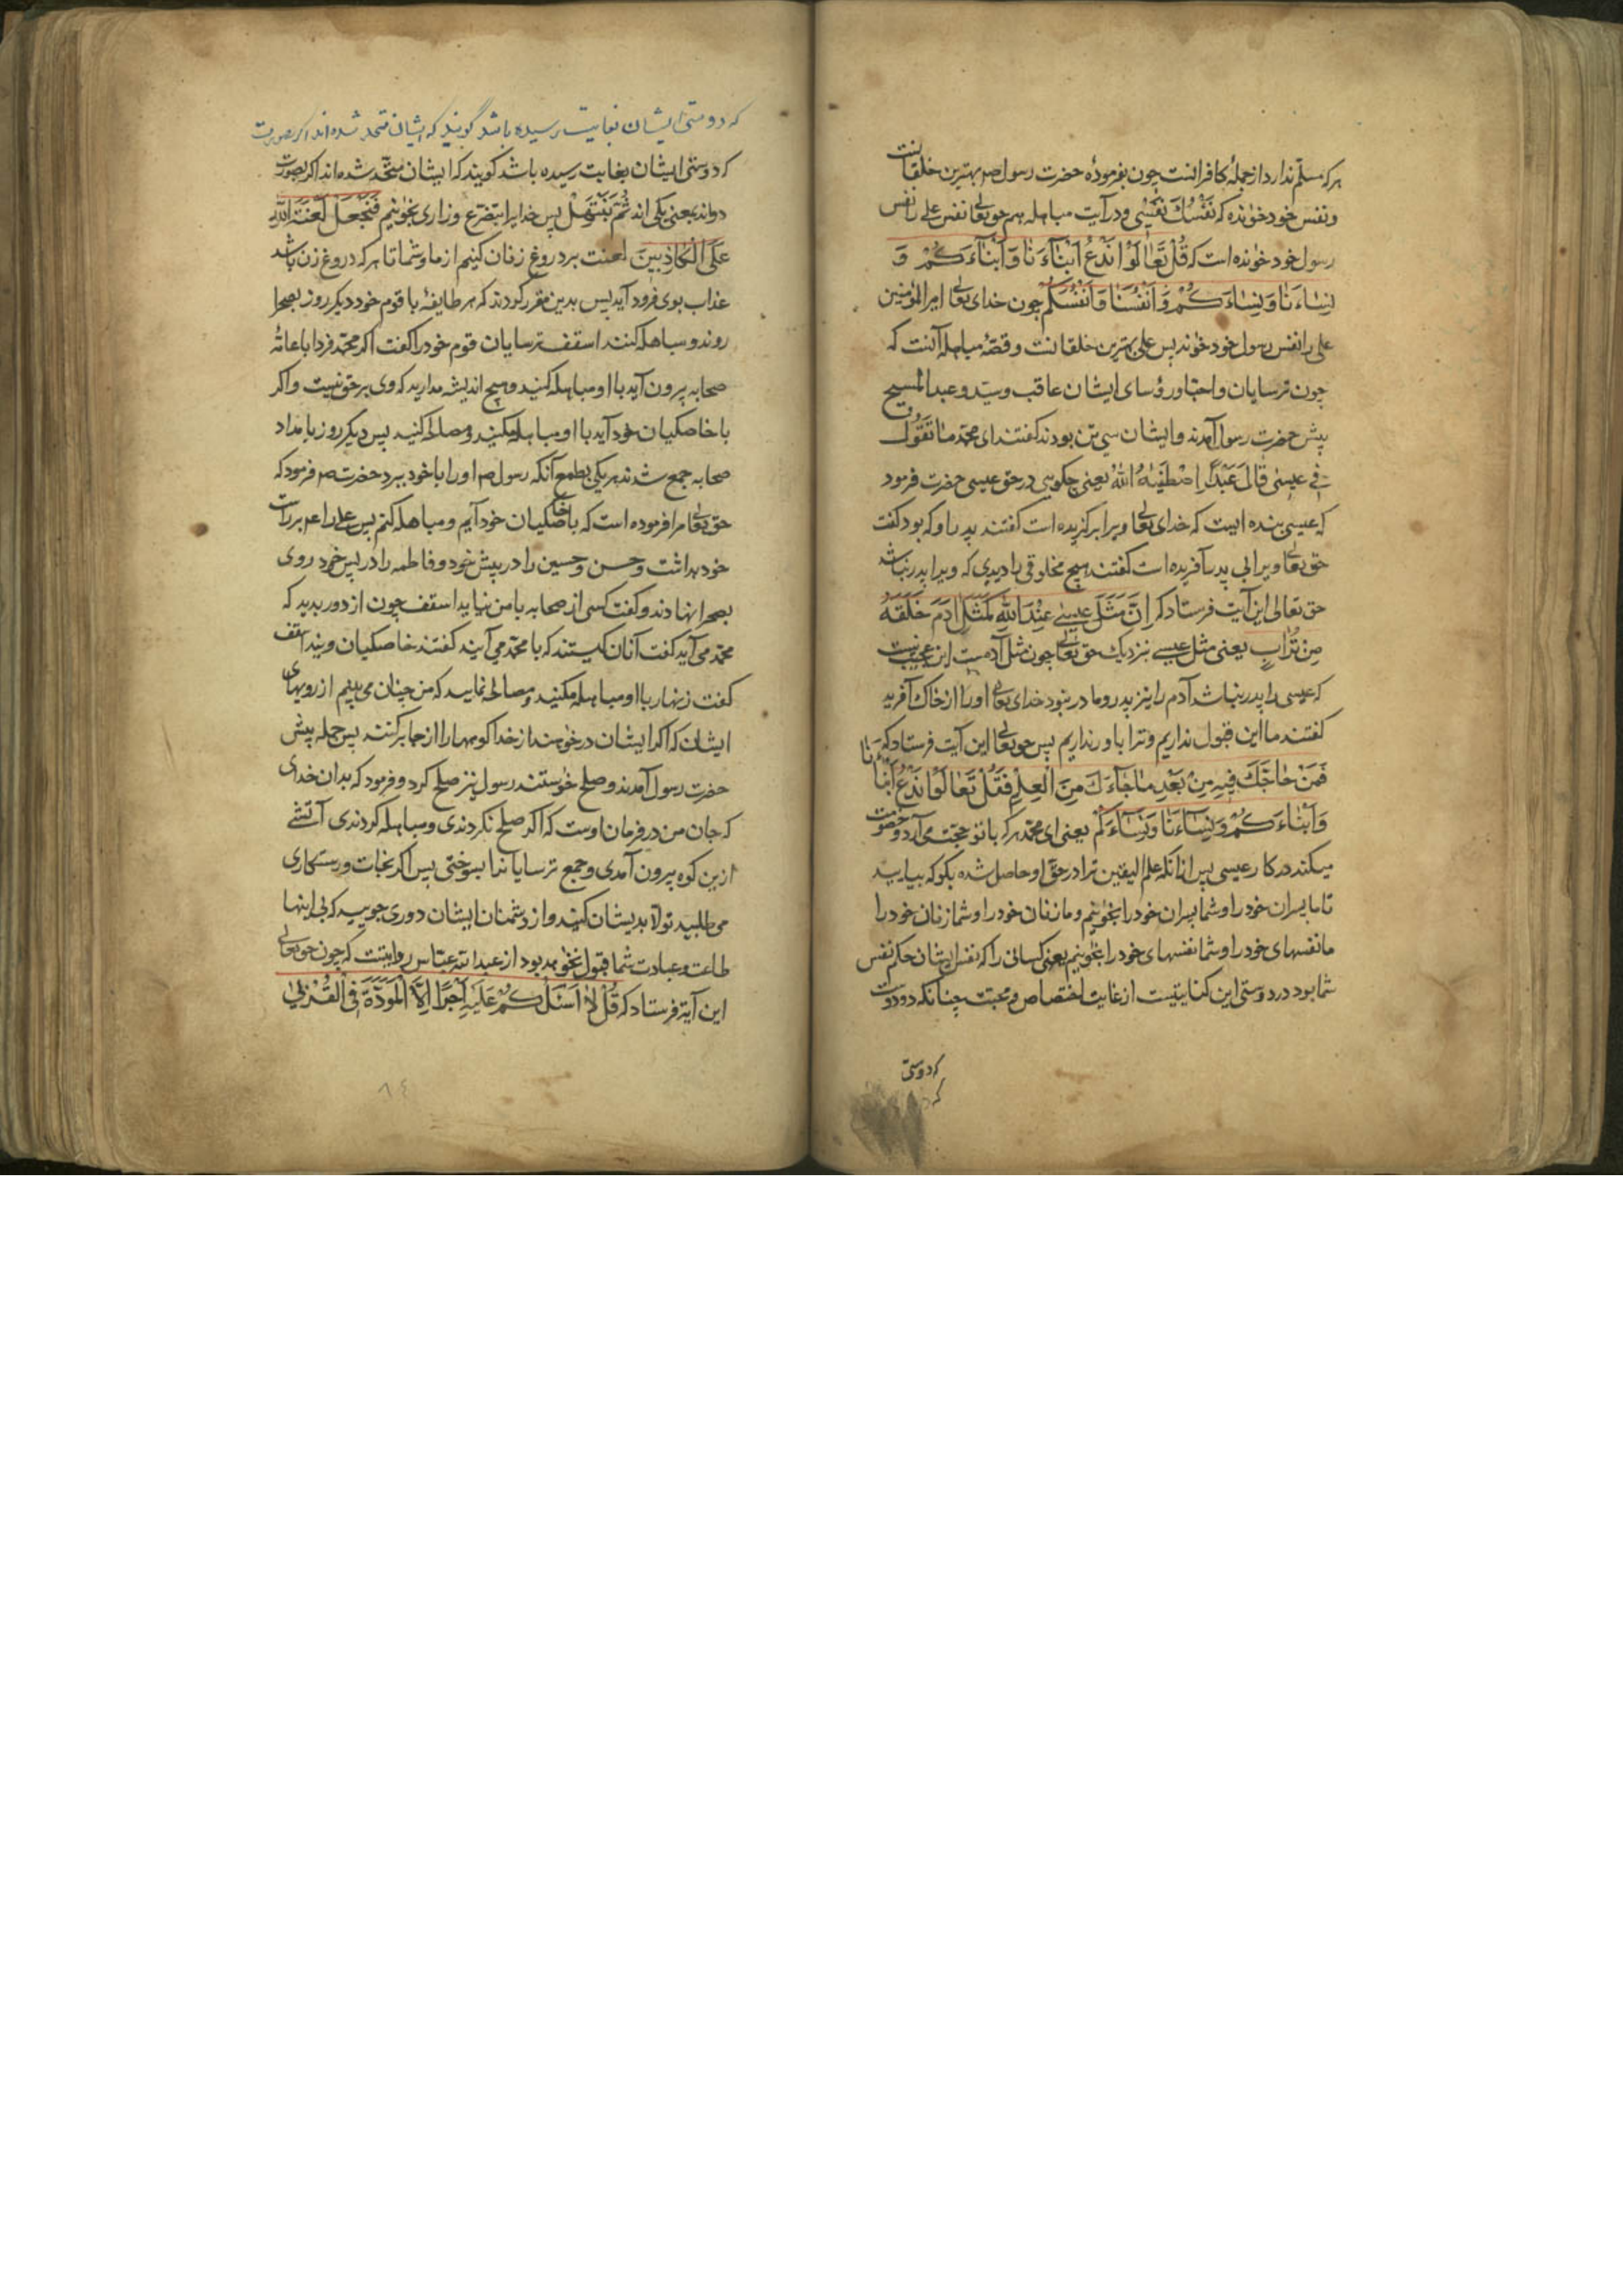 هرکه مسلم ندارد از جملهٔ کافرانست چون بفرمودهٔ حضرت رسول صم بهترین خلقانست
ونفس خود خوٰانده که نَفْسُكَ نَفْسی ودر آیت مباهله هم حق تعٰا نفس علی را نفس
رسول خود خوٰانده است که قُلْ تَعٰالَوْا نَدْعُ اَبْنٰاءَنٰا وَاَبْنٰاءَكُمْ وَ
نِسٰاءَنٰا وَنِسٰاءَكُمْ وَاَنْفُسَنٰا وَاَنْفُسَكُمْ چون خدای تعٰا امیر المؤمنین
علی را نفس رسول خود خوٰاند پس علی بهترین خلقانست وقصهٔ مباهله آنست که
چون ترسایان واحبٰاور رؤسای ایشان عاقب وسیّد وعبد المسیح
پیش حضرت رسول آمدند وایشان سی تن بودند کفتند ای محمّد مٰا تَقُوُلُ
فی عیسٰی قٰالَ عَبْدٌ اِصْطَفیٰهُ اللّٰهُ یعنی چکویی در حق عیسی حضرت فرمود
که عیسی بنده ایست که خدای تعٰا ویرا برکزیده است کفتند پدر او که بود کفت
حق تعٰا ویرا بی پدر آفریده است کفتند هیچ مخلوقی را دیدی که ویرا پدر نباشد
حق تعالی این آیت فرستاد که اِنَّ مَثَلَ عیسٰی عِنْدَ اللّٰهِ کَمَثَلِ اٰدَمَ خَلَقَهُ
مِنْ تُرٰابٍ یعنی مثل عیسی نزدیك حق تعٰا چون مثل آدمست این عجب نیست
که عیسی را پدر نباشد آدم را نیز پدر ومادر نبود خدای تعٰا اورا از خاك آفرید
کفتند ما این قبول نداریم وترا باور نداریم پس حق تعٰا این آیت فرستاد که
فَمَنْ حٰاجَّكَ فیهِ مِنْ بَعْدِ مٰاجٰاءَكَ مِنَ الْعِلْمِ فَقُلْ تَعٰالَوْا نَدْعُ اَبْنٰاءَنٰا
وَاَبْنٰاءَكُمْ وَنِسٰاءَنٰا وَنِسٰاءَكُمْ یعنی ای محمّد هرکه با تو حجّت می آرد وخصومت
میکند در کار عیسی پس ازانکه علم الیقین ترا در حقّ او حاصل شده بکو که بیارید
تا ما پسران خودرا وشما پسران خودرا بخوٰانیم وما زنان خودرا وشما زنان خودرا
ما نفسهای خودرا وشما نفسهای خودرا بخوٰانیم یعنی کسانی را که نفس ایشان حکم نفس
شما بود در دوستی این کنایتیست از غایت اختصاص ومحبت چنانکه دو دوست
که دوستی
که
که دوستی ایشان بغایت رسیده باشد گویند که ایشان متحد شده اند اگر بصورت
که دوستی ایشان بغایت رسیده باشد کویند که ایشان متّحد شده اند اکر بصورت
دواند بمعنی یکی اند ثُمَّ نَبْتَهِلْ پس خدایرا بتضرّع وزاری بخوٰانیم فَنَجْعَلْ لَعْنَتَ اللّٰهِ
عَلَی الْکٰاذِبینَ لعنت بر دروغ زنان کنیم از ما وشما تا هرکه دروغ زن باشد
عذاب بوی فرود آید پس بدین مقرر کردند که هر طایفهٔ با قوم خود دیکر روز بصحرا
روند ومباهله کنند اسقف ترسایان قوم خودرا کفت اکر محمّد فردا با عامّهٔ
صحابه بیرون آید با او مباهله کنید وهیچ اندیشه مدارید که وی بر حق نیست واکر
با خاصکیان خود آید با او مباهله مکنید ومصالحه کنید پس دیکر روز بامداد
صحابه جمع شدند هر یکی بطمع آنکه رسول صم اورا با خود ببرد حضرت صم فرمود که
حق تعٰا مرا فرموده است که با خاصکیان خود آیم ومباهله کنم پس علی را عم بر راست
خود بداشت وحسن وحسین را در پیش خود وفاطمه را در پس خود روی
بصحرا نهادند وکفت کسی از صحابه با من نیاید اسقف چون از دور بدید که
محمّد می آید کفت آنان کیستند که با محمّد می آیند کفتند خاصکیان ویند اسقف
کفت زنهار با او مباهله مکنید ومصالحه نمایید که من چنان می بینم از رویهای
ایشان که اکر ایشان درخوٰاهند از خدا کوهها را از جا برکنند پس جمله پیش
حضرت رسول آمدند وصلح خوٰاستند رسول نیز صلح کرد وفرمود که بدان خدای
که جان من در فرمان اوست که اکر صلح نکردندی ومباهله کردندی آتشی
ازین کوه بیرون آمدی وجمع ترسایانرا بسوختی پس اکر نجات ورستکاری
می طلبید تولّا بدیشان کنید واز دشمنان ایشان دوری جویید که بی اینها
طاعت وعبادت شما قبول نخوٰاهد بود از عبد اللّه عبّاس روایتست که چون حق تعٰا
این آیة فرستاد که قُلْ لٰا اَسْئَلُكُمْ عَلَیْهِ اَجْرًا اِلَّا الْمَوَدَّةَ فِی الْقُرْبٰی
٨٤